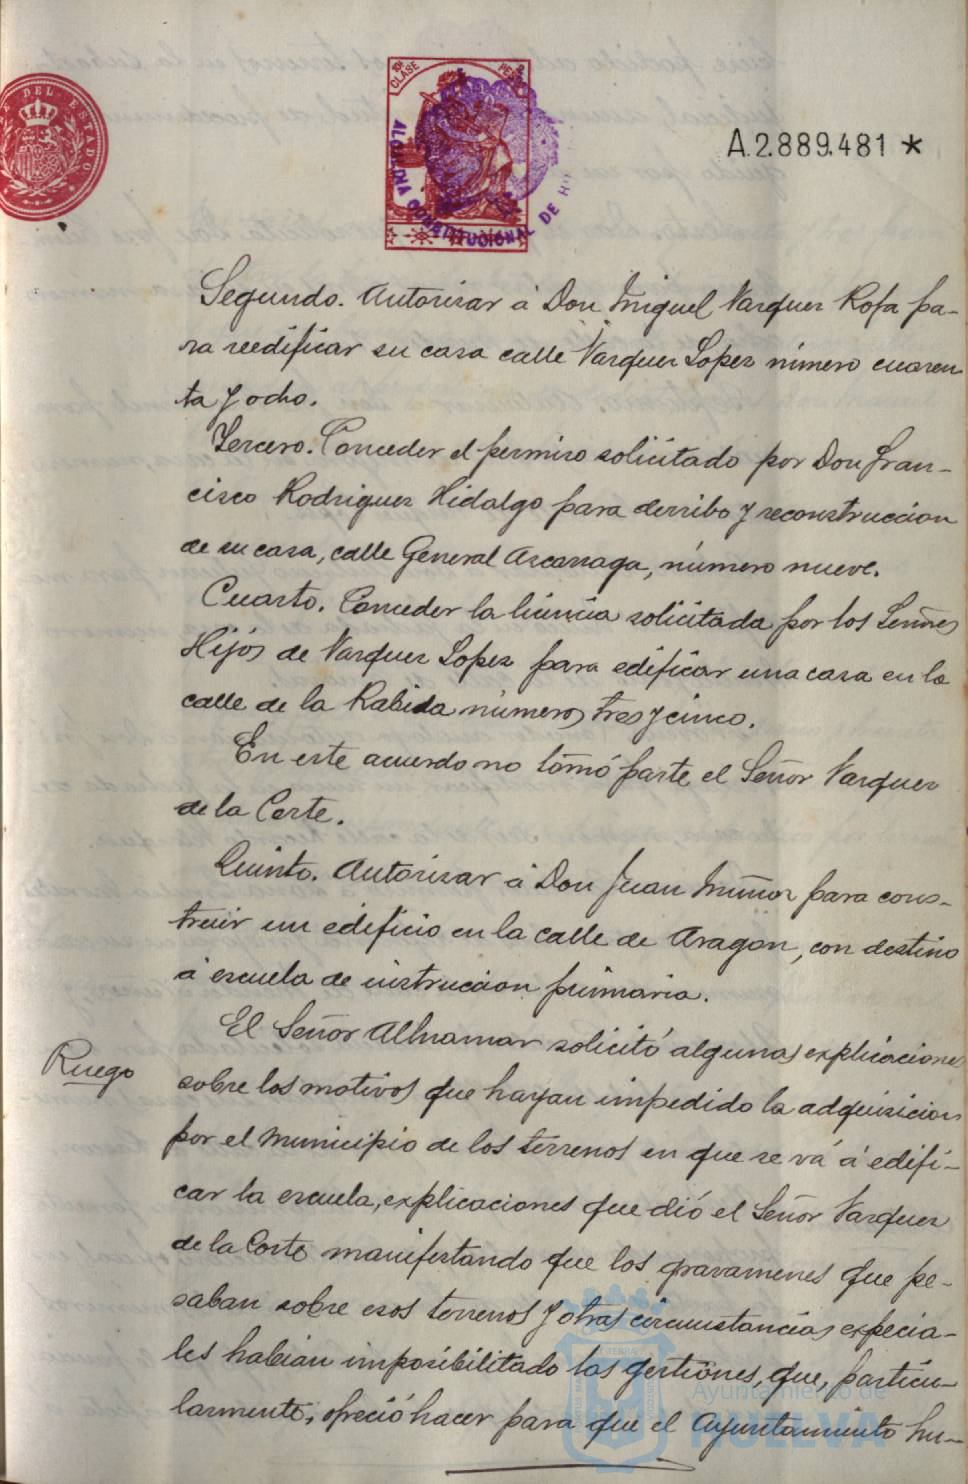 DEL ESTADO
10ª CLASE
PESE
ALCALDIA CONSTITUCIONAL DE H
A.2.889.481 *
Segundo. Autorizar á Don Miguel Vazquez Rofa pa-
ra reedificar su casa calle Vazquez Lopez número cuaren
ta y ocho.
Tercero. Conceder el permiso solicitado por Don Fran-
cisco Rodriguez Hidalgo para derribo y reconstruccion
de su casa, calle General Azcarraga, número nueve.
Cuarto. Conceder la licencia solicitada por los Señores
Hijos de Vazquez Lopez para edificar una casa en la
calle de la Rabida números tres y cinco.
En este acuerdo no tomó parte el Señor Vazquez
de la Corte.
Quinto. Autorizar á Don Juan Muñoz para cons-
truir un edificio en la calle de Aragon, con destino
á escuela de instruccion primaria.
Ruego
El Señor Alhamar solicitó algunas explicaciones
sobre los motivos que hayan impedido la adquisicion
por el Municipio de los terrenos en que se vá á edifi-
car la escuela, explicaciones que dió el Señor Vazquez
de la Corte manifestando que los gravamenes que pe-
saban sobre esos terrenos y otras circunstancias especia-
les habian imposibilitado las gestiones, que, particu-
larmente, ofreció hacer para que el Ayuntamiento hu-
Ayuntamiento de
HUELVA